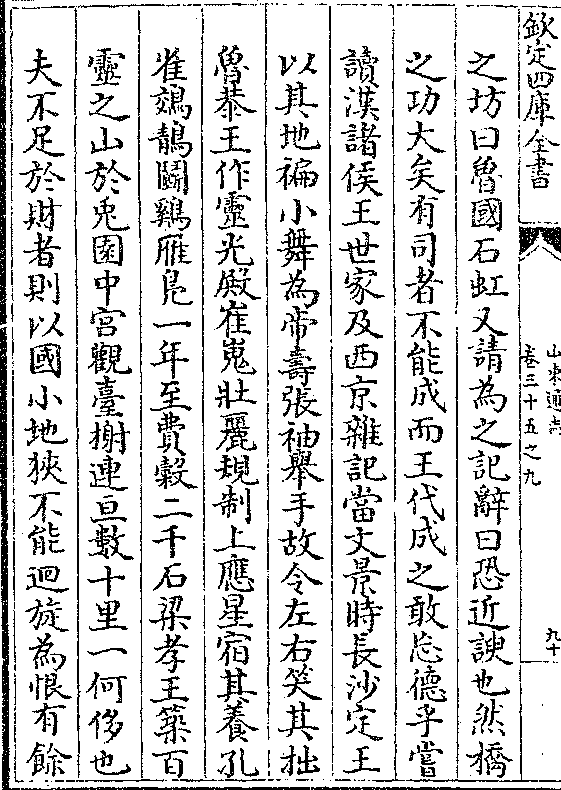 欽定四庫全書
山東通志
卷三十五之九
九十
之坊曰魯國石虹又請為之記辭曰恐近諛也然橋
之功大矣有司者不能成而王代成之敢忘德乎嘗
讀漢諸侯王世家及西京雜記當文景時長沙定王
以其地褊小舞為帝壽張袖舉手故令左右笑其拙
魯恭王作靈光殿崔嵬壯麗規制上應星宿其養孔
雀鵁鶄鬬鷄雁鳬一年至費穀二千石梁孝王築百
靈之山於兎園中宮觀臺榭連亘數十里一何侈也
夫不足於財者則以國小地狹不能迴旋為恨有餘